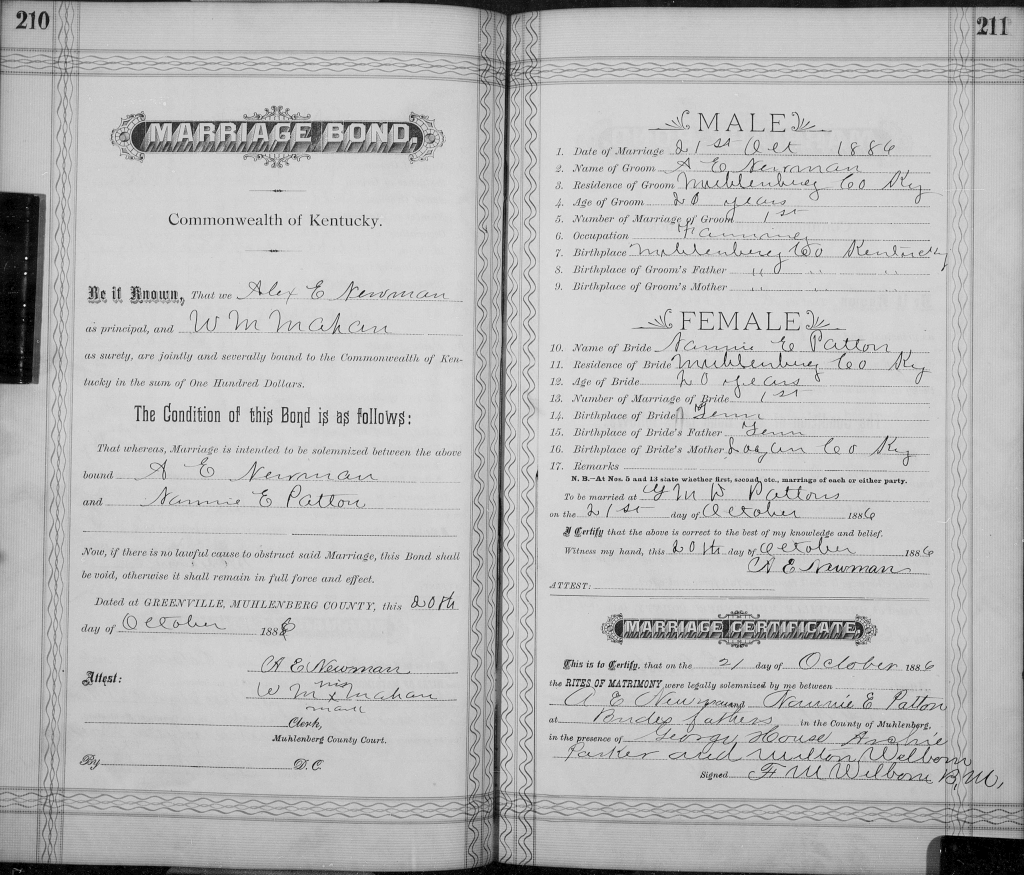 210
MARRIAGE BOND.
Commonwealth of Kentucky.
Be it Known, That we Alex E Newman
as principal, and W M Mahan
as surety, are jointly and severally bound to the Commonwealth of Ken-
tucky in the sum of One Hundred Dollars.
The Condition of this Bond is as follows:
That whereas, Marriage is intended to be solemnized between the above
bound A E Newman
and Nannie E Patton
Now, if there is no lawful cause to obstruct said Marriage, this Bond shall
be void, otherwise it shall remain in full force and effect.
Dated at GREENVILLE, MUHLENBERG COUNTY, this 20th
day of October 188
A E Newman
Attest:
his
W M x Mahan
mark
Clerk,
Muhlenberg County Court.
By D. C.
211
MALE
1. Date of Marriage 21st Oct 1886
2. Name of Groom A E Newman
3. Residence of Groom Muhlenberg Co Ky
4. Age of Groom 20 years
5. Number of Marriage of Groom 1st
6. Occupation Farming
7. Birthplace Muhlenberg Co Kentucky
8. Birthplace of Groom's Father " " "
9. Birthplace of Groom's Mother " " "
FEMALE
10. Name of Bride Nannie E Patton
11. Residence of Bride Muhlenberg Co Ky
12. Age of Bride 20 years
13. Number of Marriage of Bride 1st
14. Birthplace of Bride Tenn
15. Birthplace of Bride's Father Tenn
16. Birthplace of Bride's Mother Logan Co Ky
17. Remarks
N. B.—At Nos. 5 and 13 state whether first, second, etc., marriages of each or either party.
To be married at Pattons
on the 21st day of October 1886
I Certify that the above is correct to the best of my knowledge and belief.
Witness my hand, this 20th day of October 1886
A E Newman
ATTEST:
MARRIAGE CERTIFICATE.
This is to Certify, that on the 21 day of October 1886
the RITES OF MATRIMONY were legally solemnized by me between
A E Newman and Nannie E Patton
at Brides fathers in the County of Muhlenberg,
in the presence of George House Archie
Parker and Milton Welborn
Signed F M Welborn B. M.